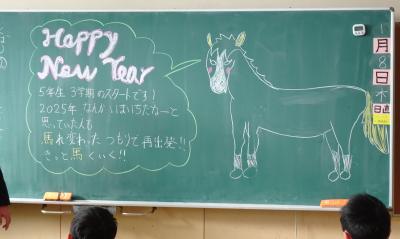 Happy
New Year
5年生 3学期のスタートです!
2025年 なんかいまいちだなーと
思っていた人も
馬れ変わったつもりで再出発!!
きっと馬くいく!!
月
8
日
木
日直